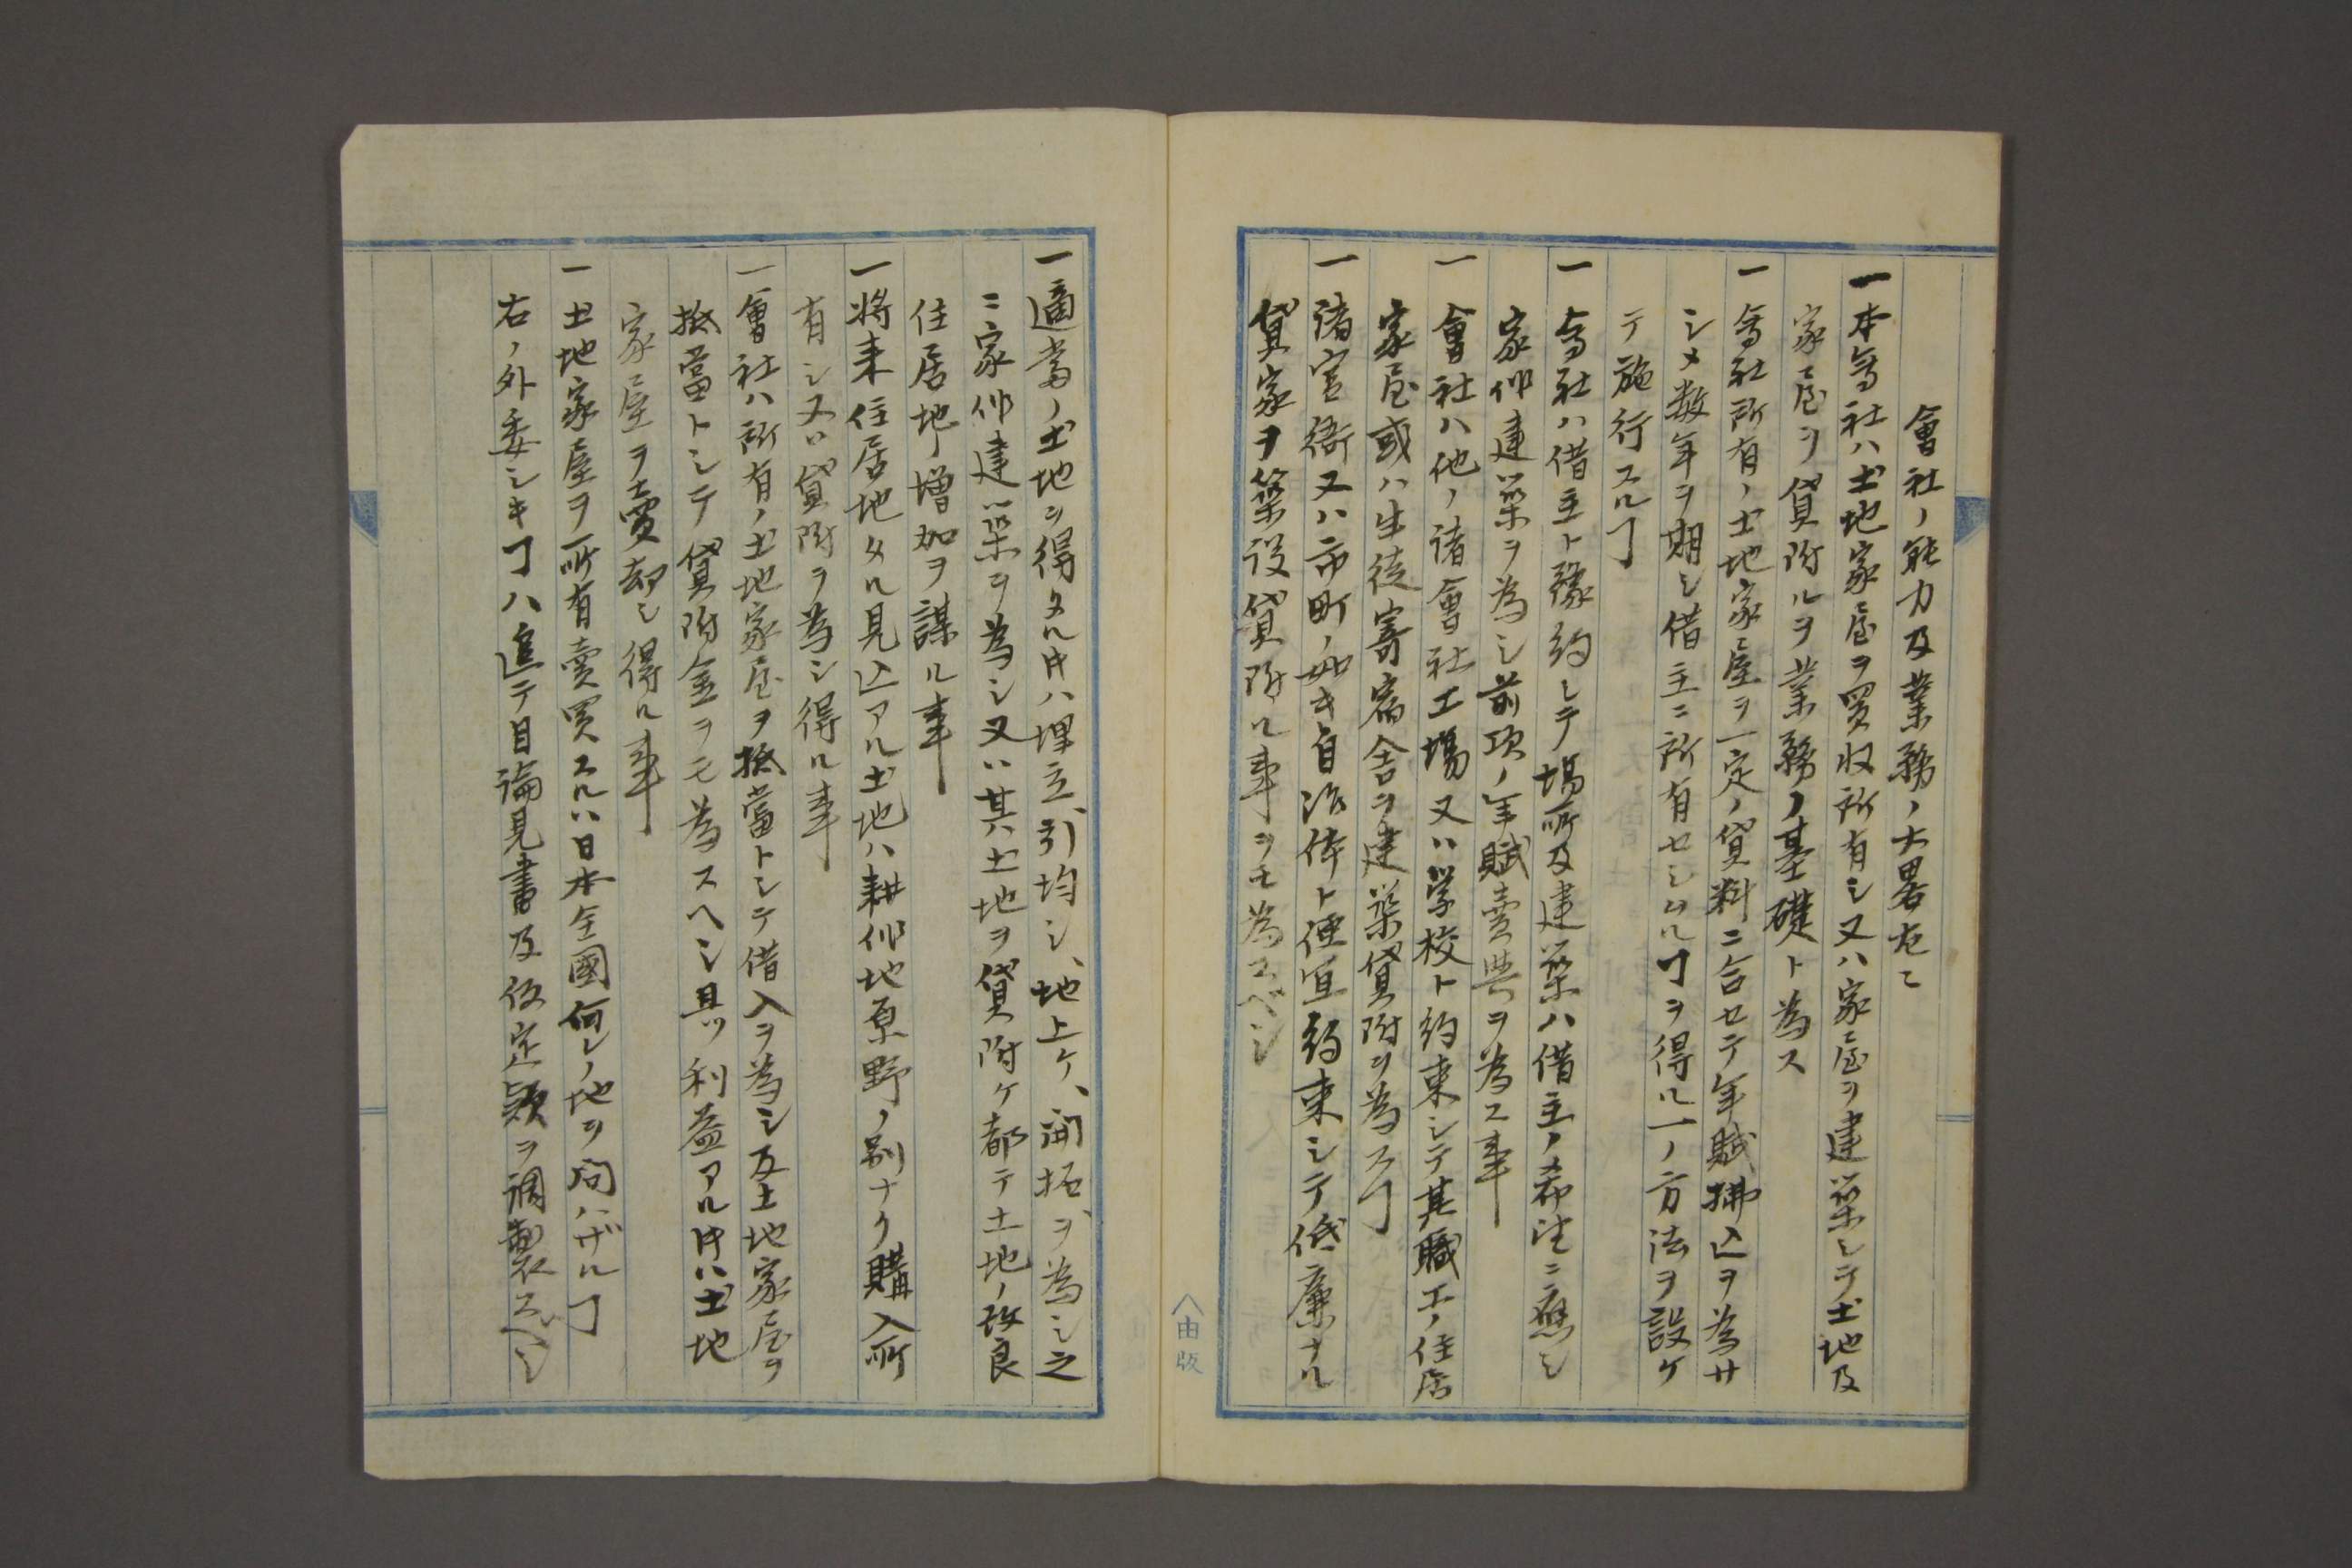 會社ノ能力及業務ノ大畧左ニ
一本會社ハ土地家屋ヲ買収所有シ又ハ家屋ヲ建築シテ土地及
家屋ヲ貸附ルヲ業務ノ基礎ト為ス
一會社所有ノ土地家屋ヲ一定ノ貸料ニ合セテ年賦拂込ヲ為サ
シメ数年ヲ期シ借主ニ所有セシムルヿヲ得ル一ノ方法ヲ設ケ
テ施行スルヿ
一會社ハ借主ト豫約シテ場所及建築ハ借主ノ希望ニ應シ
家作建築ヲ為シ前項ノ年賦賣與ヲ為ス事
一會社ハ他ノ諸會社工場又ハ学校ト約束シテ其職工ノ住居
家屋或ハ生徒寄宿舎ヲ建築貸附ヲ為スヿ
一諸官衙又ハ市町ノ如キ自治体ト便宜約束シテ低廉ナル
貸家ヲ築設貸附ル事ヲモ為スベシ
一適當ノ土地ヲ得タル𬼀ハ埋立、引均シ、地上ケ、開拓、ヲ為シ之
ニ家作建築ヲ為シ又ハ其土地ヲ貸附ケ都テ土地ノ改良
住居地ノ増加ヲ謀ル事
一将来住居地タル見込アル土地ハ耕作地原野ノ別ナク購入所
有シ又ハ貸附ヲ為シ得ル事
一會社ハ所有ノ土地家屋ヲ抵當トシテ借入ヲ為シ及土地家屋ヲ
抵當トシテ貸附金ヲモ為スヘシ且ツ利益アル𬼀ハ土地
家屋ヲ賣却シ得ル事
一土地家屋ヲ所有賣買スルハ日本全國何レノ地ヲ問ハザルヿ
右ノ外委シキヿハ追テ目論見書及仮定款ヲ調製スベシ